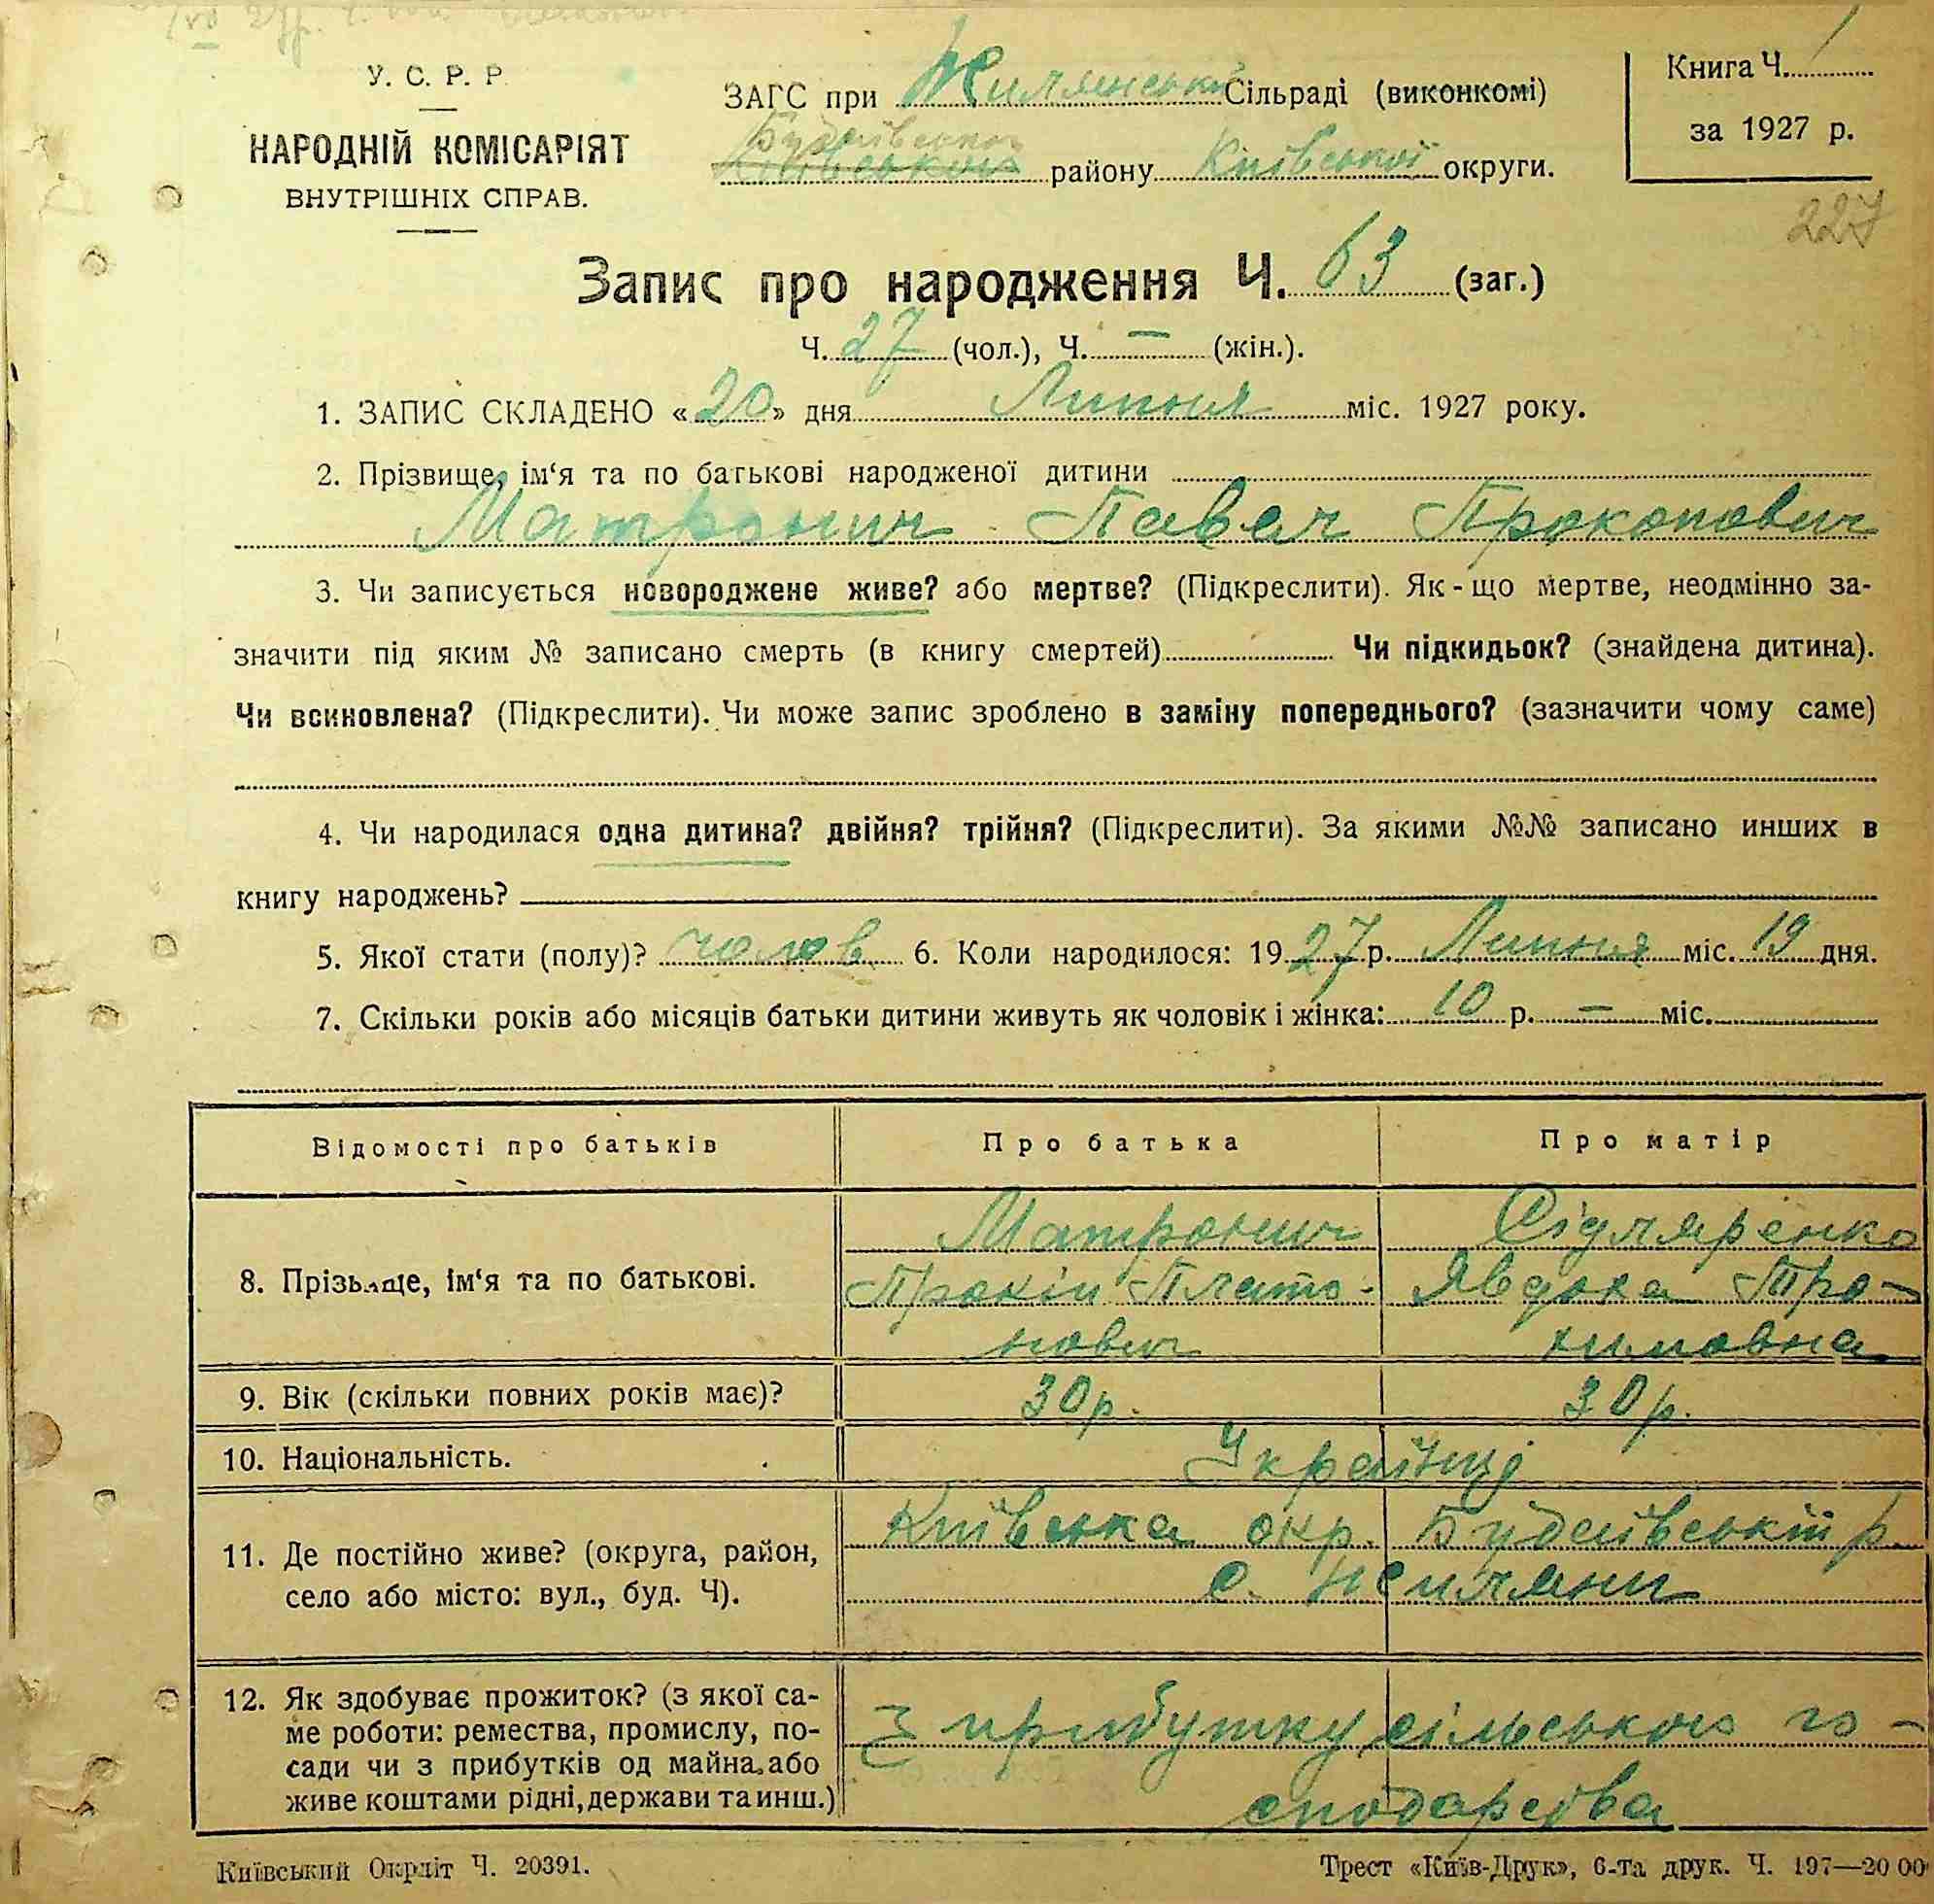 У. С. Р. Р.
НАРОДНІЙ КОМІСАРІЯТ
ВНУТРІШНІХ СПРАВ.
ЗАГС при Жилянській Сільраді (виконкомі)
Будаївського
Київського району Київської округи.
Книга Ч. 1
за 1927 р.
227
Запис про народження Ч. 63 (заг.)
Ч. 27 (чол.), Ч. — (жін.).
1. ЗАПИС СКЛАДЕНО «20» дня Липня міс. 1927 року.
2. Прізвище, ім‘я та по батькові народженої дитини
Матронич Павел Прокопович
3. Чи записується новороджене живе? або мертве? (Підкреслити). Як-що мертве, неодмінно за-
значити під яким № записано смерть (в книгу смертей) Чи підкидьок? (знайдена дитина).
Чи всиновлена? (Підкреслити). Чи може запис зроблено в заміну попереднього? (зазначити чому саме)
4. Чи народилася одна дитина? двійня? трійня? (Підкреслити). За якими №№ записано инших в
книгу народжень?
5. Якої стати (полу)? чолов 6. Коли народилося: 1927 р. Липня міс. 19 дня.
7. Скільки років або місяців батьки дитини живуть як чоловік і жінка: 10 р. — міс.
Відомості про батьків Про батька Про матір
8. Прізвище, ім‘я та по батькові.
Матронич
Прокіп Плато-
нович
Сідляренко
Явдоха Тро-
химовна
9. Вік (скільки повних років має)? 30 р. 30 р.
10. Національність. Українці
11. Де постійно живе? (округа, район,
село або місто: вул., буд. Ч).
Київська окр. Будаївський р.
с. Жиляни
12. Як здобуває прожиток? (з якої са-
ме роботи: ремества, промислу, по-
сади чи з прибутків од майна, або
живе коштами рідні, держави та инш.)
З прибутку сільського го-
сподарства
Київський Окрліт Ч. 20391.
Трест «Київ-Друк», 6-та друк. Ч. 197—20 00